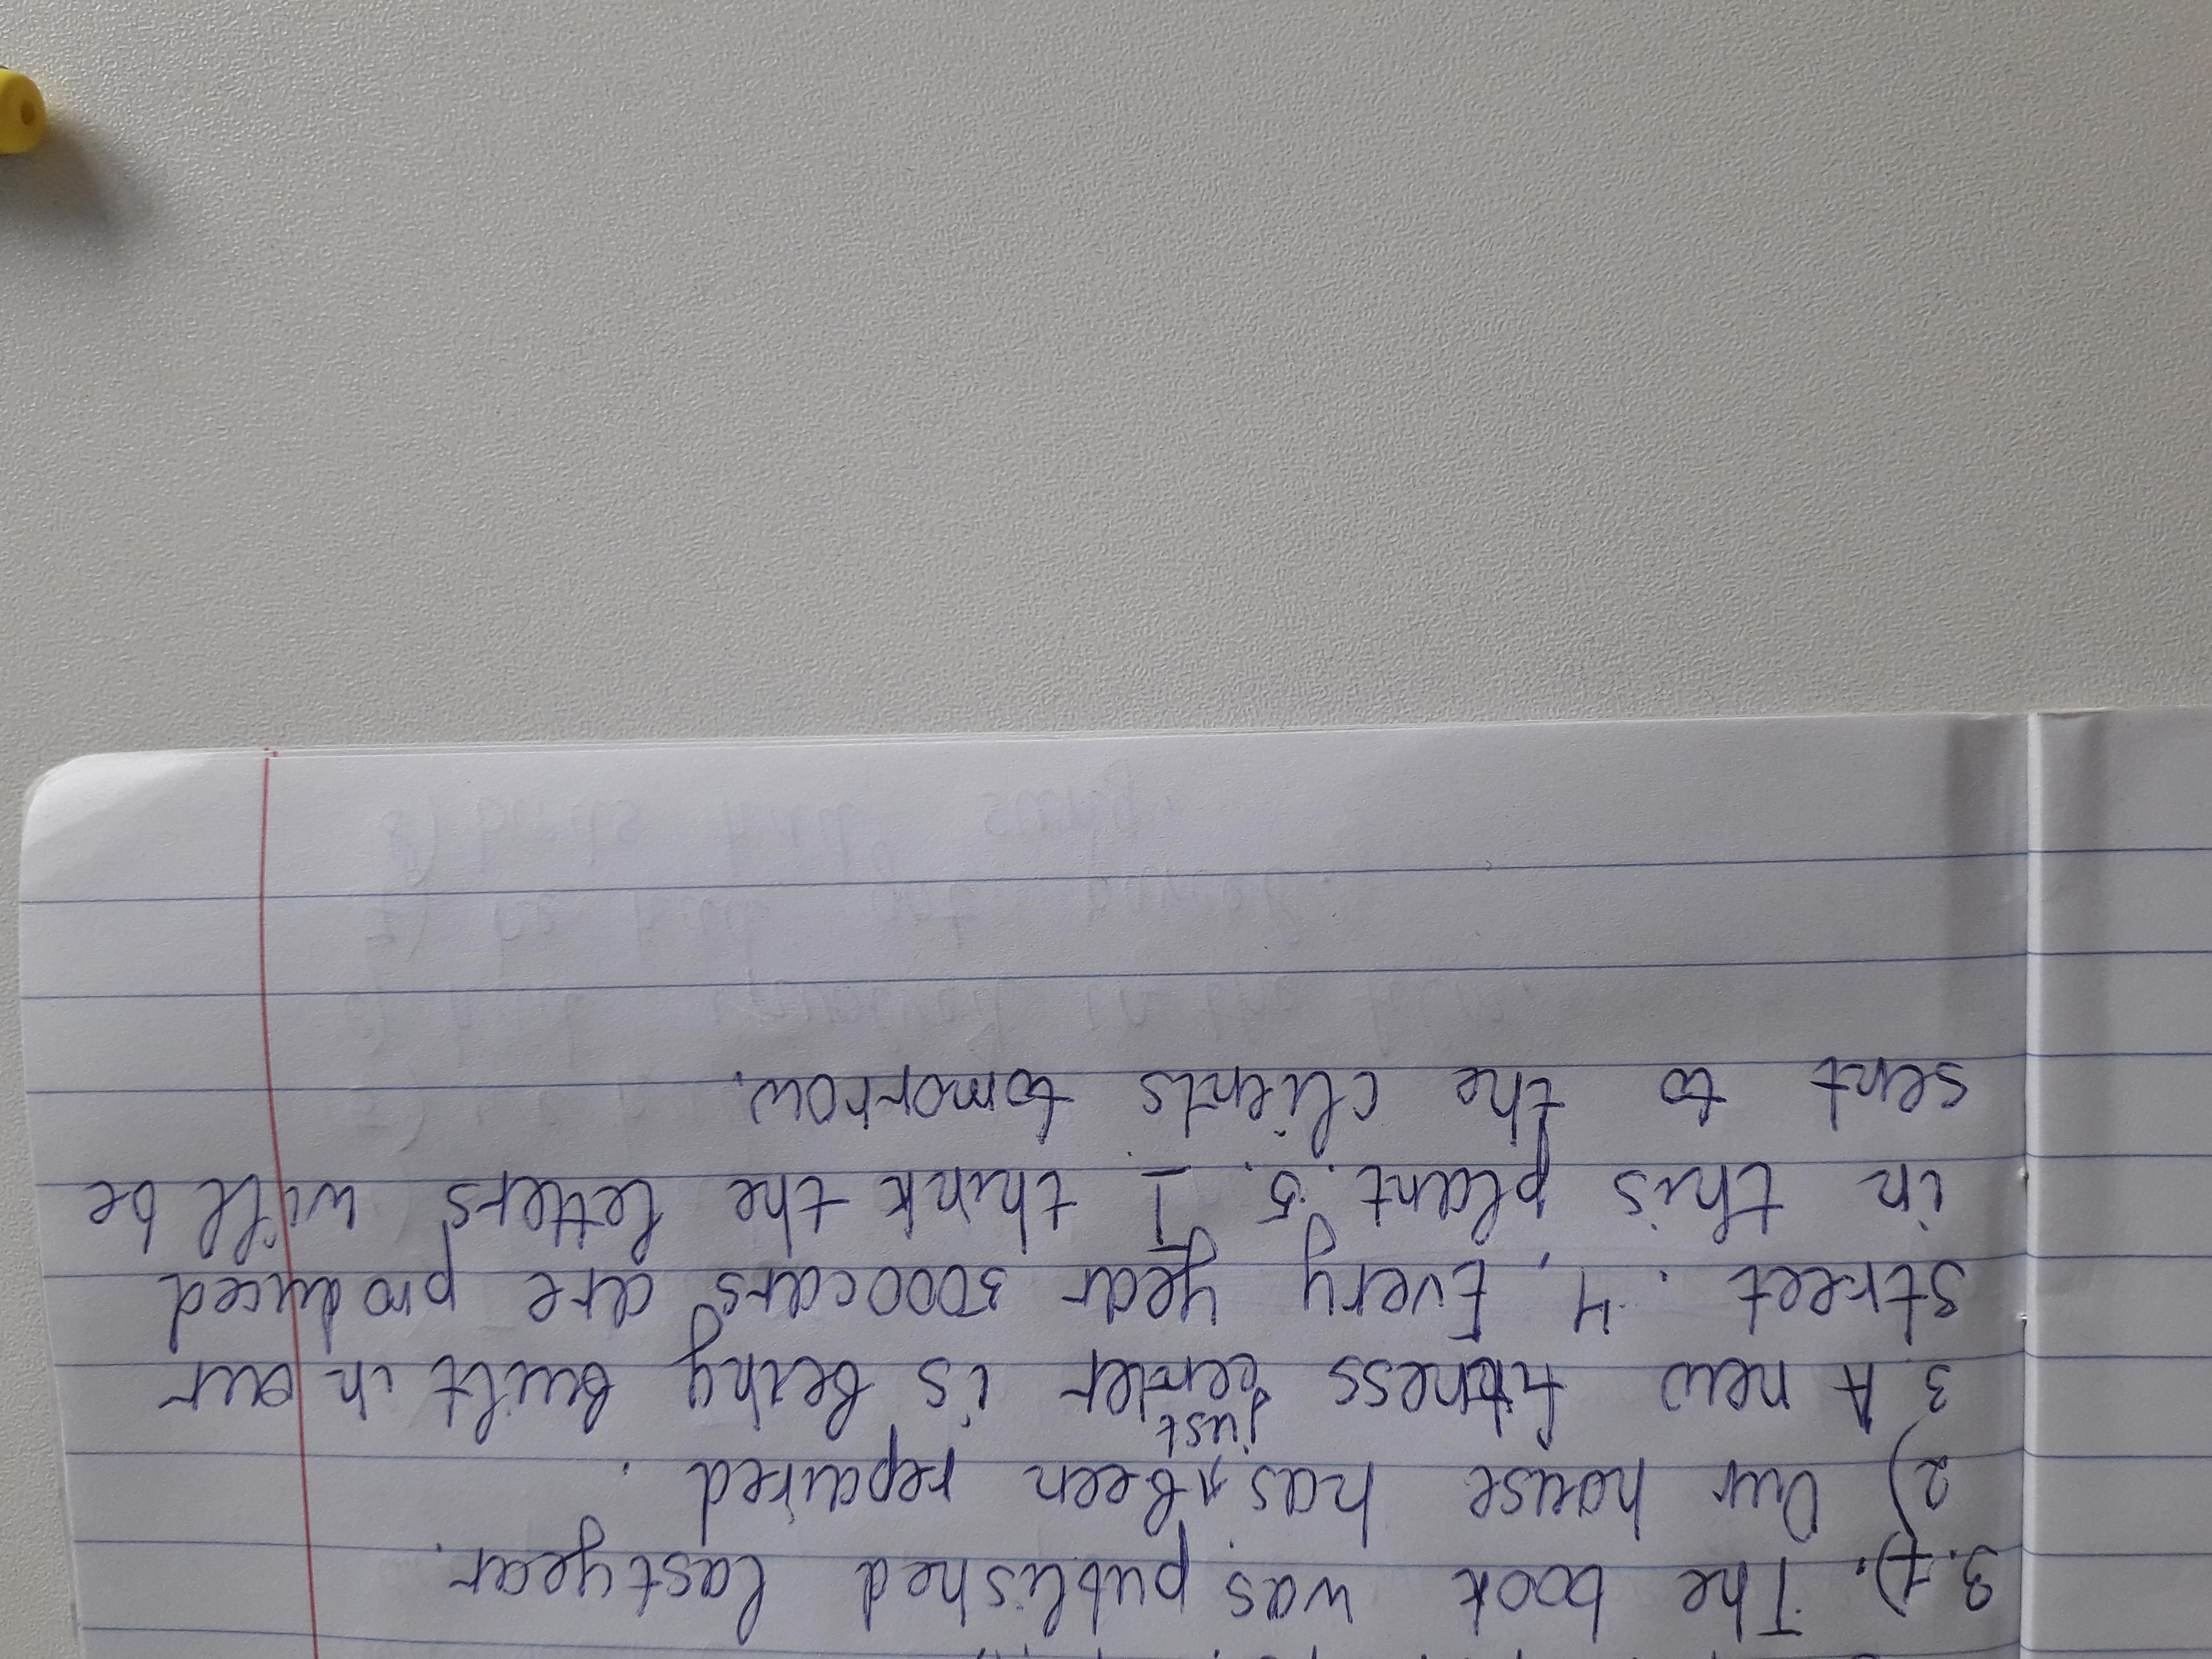 3.1). The book was published last year.
2) Our house has just been repaired.
3. A new fitness center is being built in our
street. 4. Every year 3000 cars are produced
in this plant. 5. I think the letters will be
sent to the clients tomorrow.